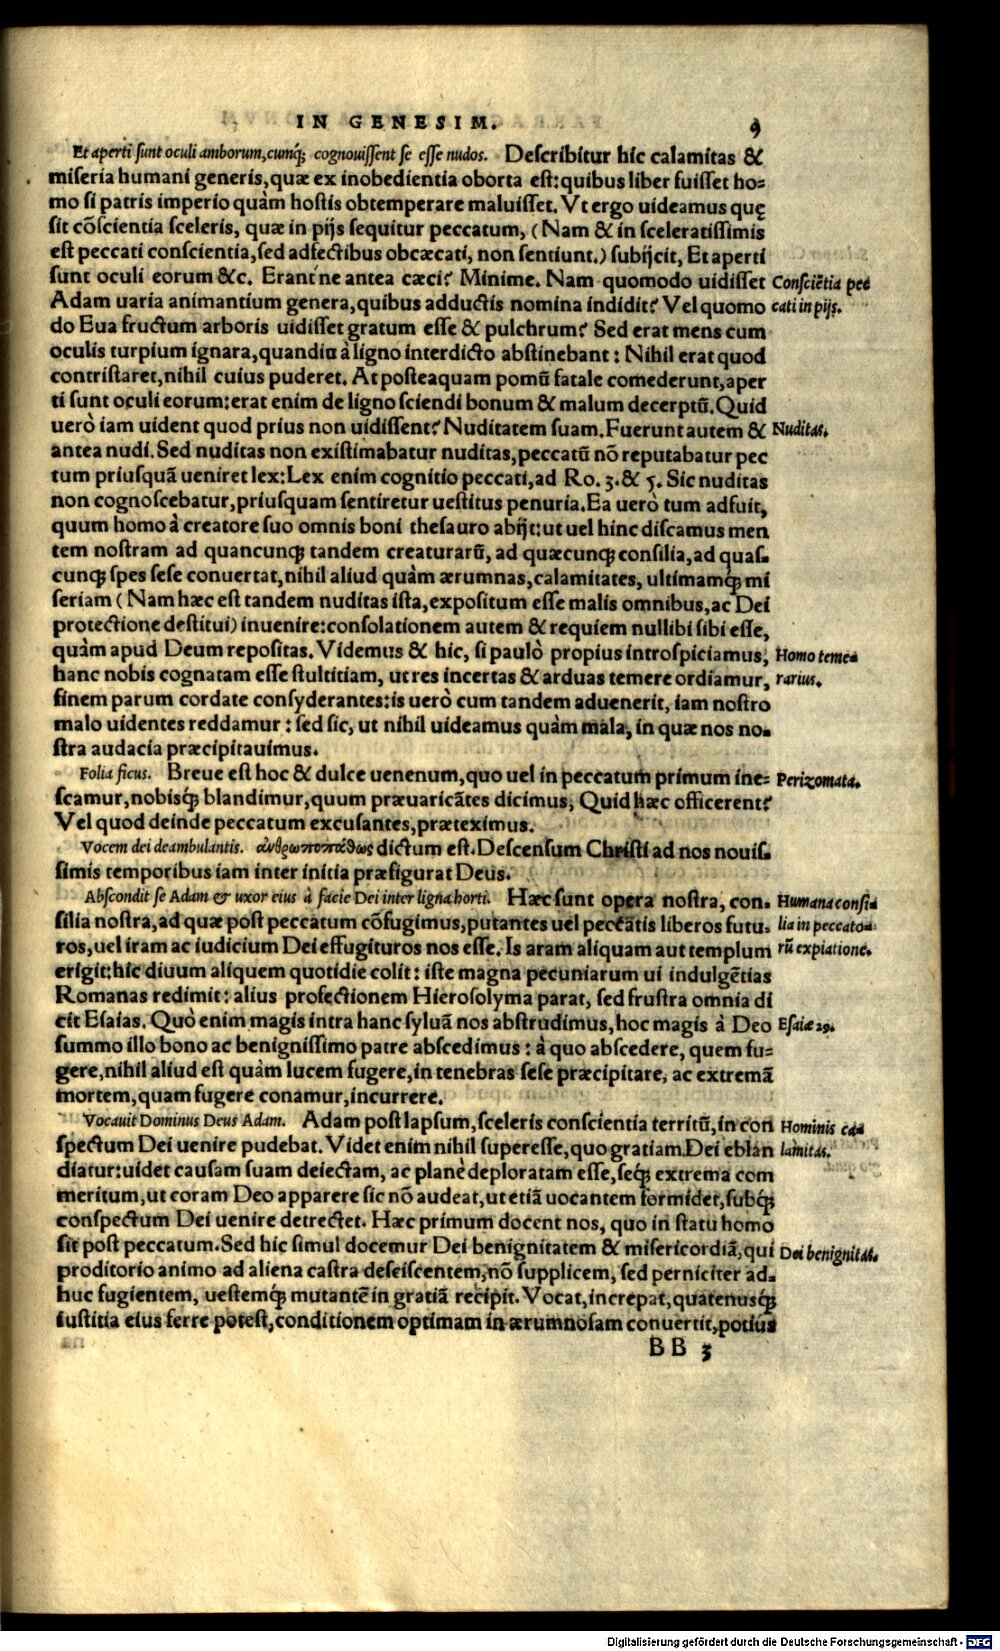 IN GENESIM. 9
Et aperti sunt oculi amborum, cumq́; cognouissent se esse nudos. Describitur hic calamitas &
miseria humani generis, quæ ex inobedientia oborta est: quibus liber fuisset ho=
mo si patris imperio quàm hostis obtemperare maluisset. Vt ergo uideamus quę
sit cõscientia sceleris, quæ in pijs sequitur peccatum, (Nam & in sceleratissimis
est peccati conscientia, sed adfectibus obcæcati, non sentiunt.) subijcit, Et aperti
sunt oculi eorum &c. Erant ne antea cæci? Minime. Nam quomodo uidisset
Consciẽtia pec
Adam uaria animantium genera, quibus adductis nomina indidit? Vel quomo
cati in pijs.
do Eua fructum arboris uidisset gratum esse & pulchrum? Sed erat mens cum
oculis turpium ignara, quandiu à ligno interdicto abstinebant: Nihil erat quod
contristaret, nihil cuius puderet. At posteaquam pomũ fatale comederunt, aper
ti sunt oculi eorum: erat enim de ligno sciendi bonum & malum decerptũ. Quid
uerò iam uident quod prius non uidissent? Nuditatem suam. Fuerunt autem &
Nuditas.
antea nudi. Sed nuditas non existimabatur nuditas, peccatũ nõ reputabatur pec
tum priusquã ueniret lex: Lex enim cognitio peccati, ad Ro. 3. & 5. Sic nuditas
non cognoscebatur, priusquam sentiretur uestitus penuria. Ea uerò tum adfuit,
quum homo à creatore suo omnis boni thesauro abijt: ut uel hinc discamus men
tem nostram ad quancunq; tandem creaturarũ, ad quæcunq; consilia, ad quas-
cunq; spes sese conuertat, nihil aliud quàm ærumnas, calamitates, ultimamq́; mi
seriam (Nam hæc est tandem nuditas ista, expositum esse malis omnibus, ac Dei
protectione destitui) inuenire: consolationem autem & requiem nullibi sibi esse,
quàm apud Deum repositas. Videmus & hic, si paulò propius introspiciamus,
Homo teme-
hanc nobis cognatam esse stultitiam, ut res incertas & arduas temere ordiamur,
rarius.
finem parum cordate consyderantes: is uerò cum tandem aduenerit, iam nostro
malo uidentes reddamur: sed sic, ut nihil uideamus quàm mala, in quæ nos no-
stra audacia præcipitauimus.
Folia ficus. Breue est hoc & dulce uenenum, quo uel in peccatum primum ine=
Perizomata.
scamur, nobisq́; blandimur, quum præuaricãtes dicimus, Quid hæc officerent?
Vel quod deinde peccatum excusantes, præteximus.
Vocem dei deambulantis. ἀνθρωποπαθῶς dictum est. Descensum Christi ad nos nouis-
simis temporibus iam inter initia præfigurat Deus.
Abscondit se Adam & uxor eius à facie Dei inter ligna horti. Hæc sunt opera nostra, con-
Humana consi-
silia nostra, ad quæ post peccatum cõfugimus, putantes uel peccãtis liberos futu-
lia in peccato-
ros, uel iram ac iudicium Dei effugituros nos esse. Is aram aliquam aut templum
rũ expiatione.
erigit: hic diuum aliquem quotidie colit: iste magna pecuniarum ui indulgẽtias
Romanas redimit: alius profectionem Hierosolyma parat, sed frustra omnia di
cit Esaias. Quò enim magis intra hanc syluã nos abstrudimus, hoc magis à Deo
Esaiæ 29.
summo illo bono ac benignissimo patre abscedimus: à quo abscedere, quem fu=
gere, nihil aliud est quàm lucem fugere, in tenebras sese præcipitare, ac extremã
mortem, quam fugere conamur, incurrere.
Vocauit Dominus Deus Adam. Adam post lapsum, sceleris conscientia territũ, in con
Hominis ca-
spectum Dei uenire pudebat. Videt enim nihil superesse, quo gratiam Dei eblan
lamitas.
diatur: uidet causam suam deiectam, ac planè deploratam esse, seq́; extrema com
meritum, ut coram Deo apparere sic nõ audeat, ut etiã uocantem formidet, subq́;
conspectum Dei uenire detrectet. Hæc primum docent nos, quo in statu homo
sit post peccatum. Sed hic simul docemur Dei benignitatem & misericordiã, qui
Dei benignitas.
proditorio animo ad aliena castra desciscentem, nõ supplicem, sed perniciter ad-
huc fugientem, uestemq́; mutantẽ in gratiã recipit. Vocat, increpat, quatenusq́;
iustitia eius ferre potest, conditionem optimam in ærumnosam conuertit, potius
BB 3
Digitalisierung gefördert durch die Deutsche Forschungsgemeinschaft - DFG